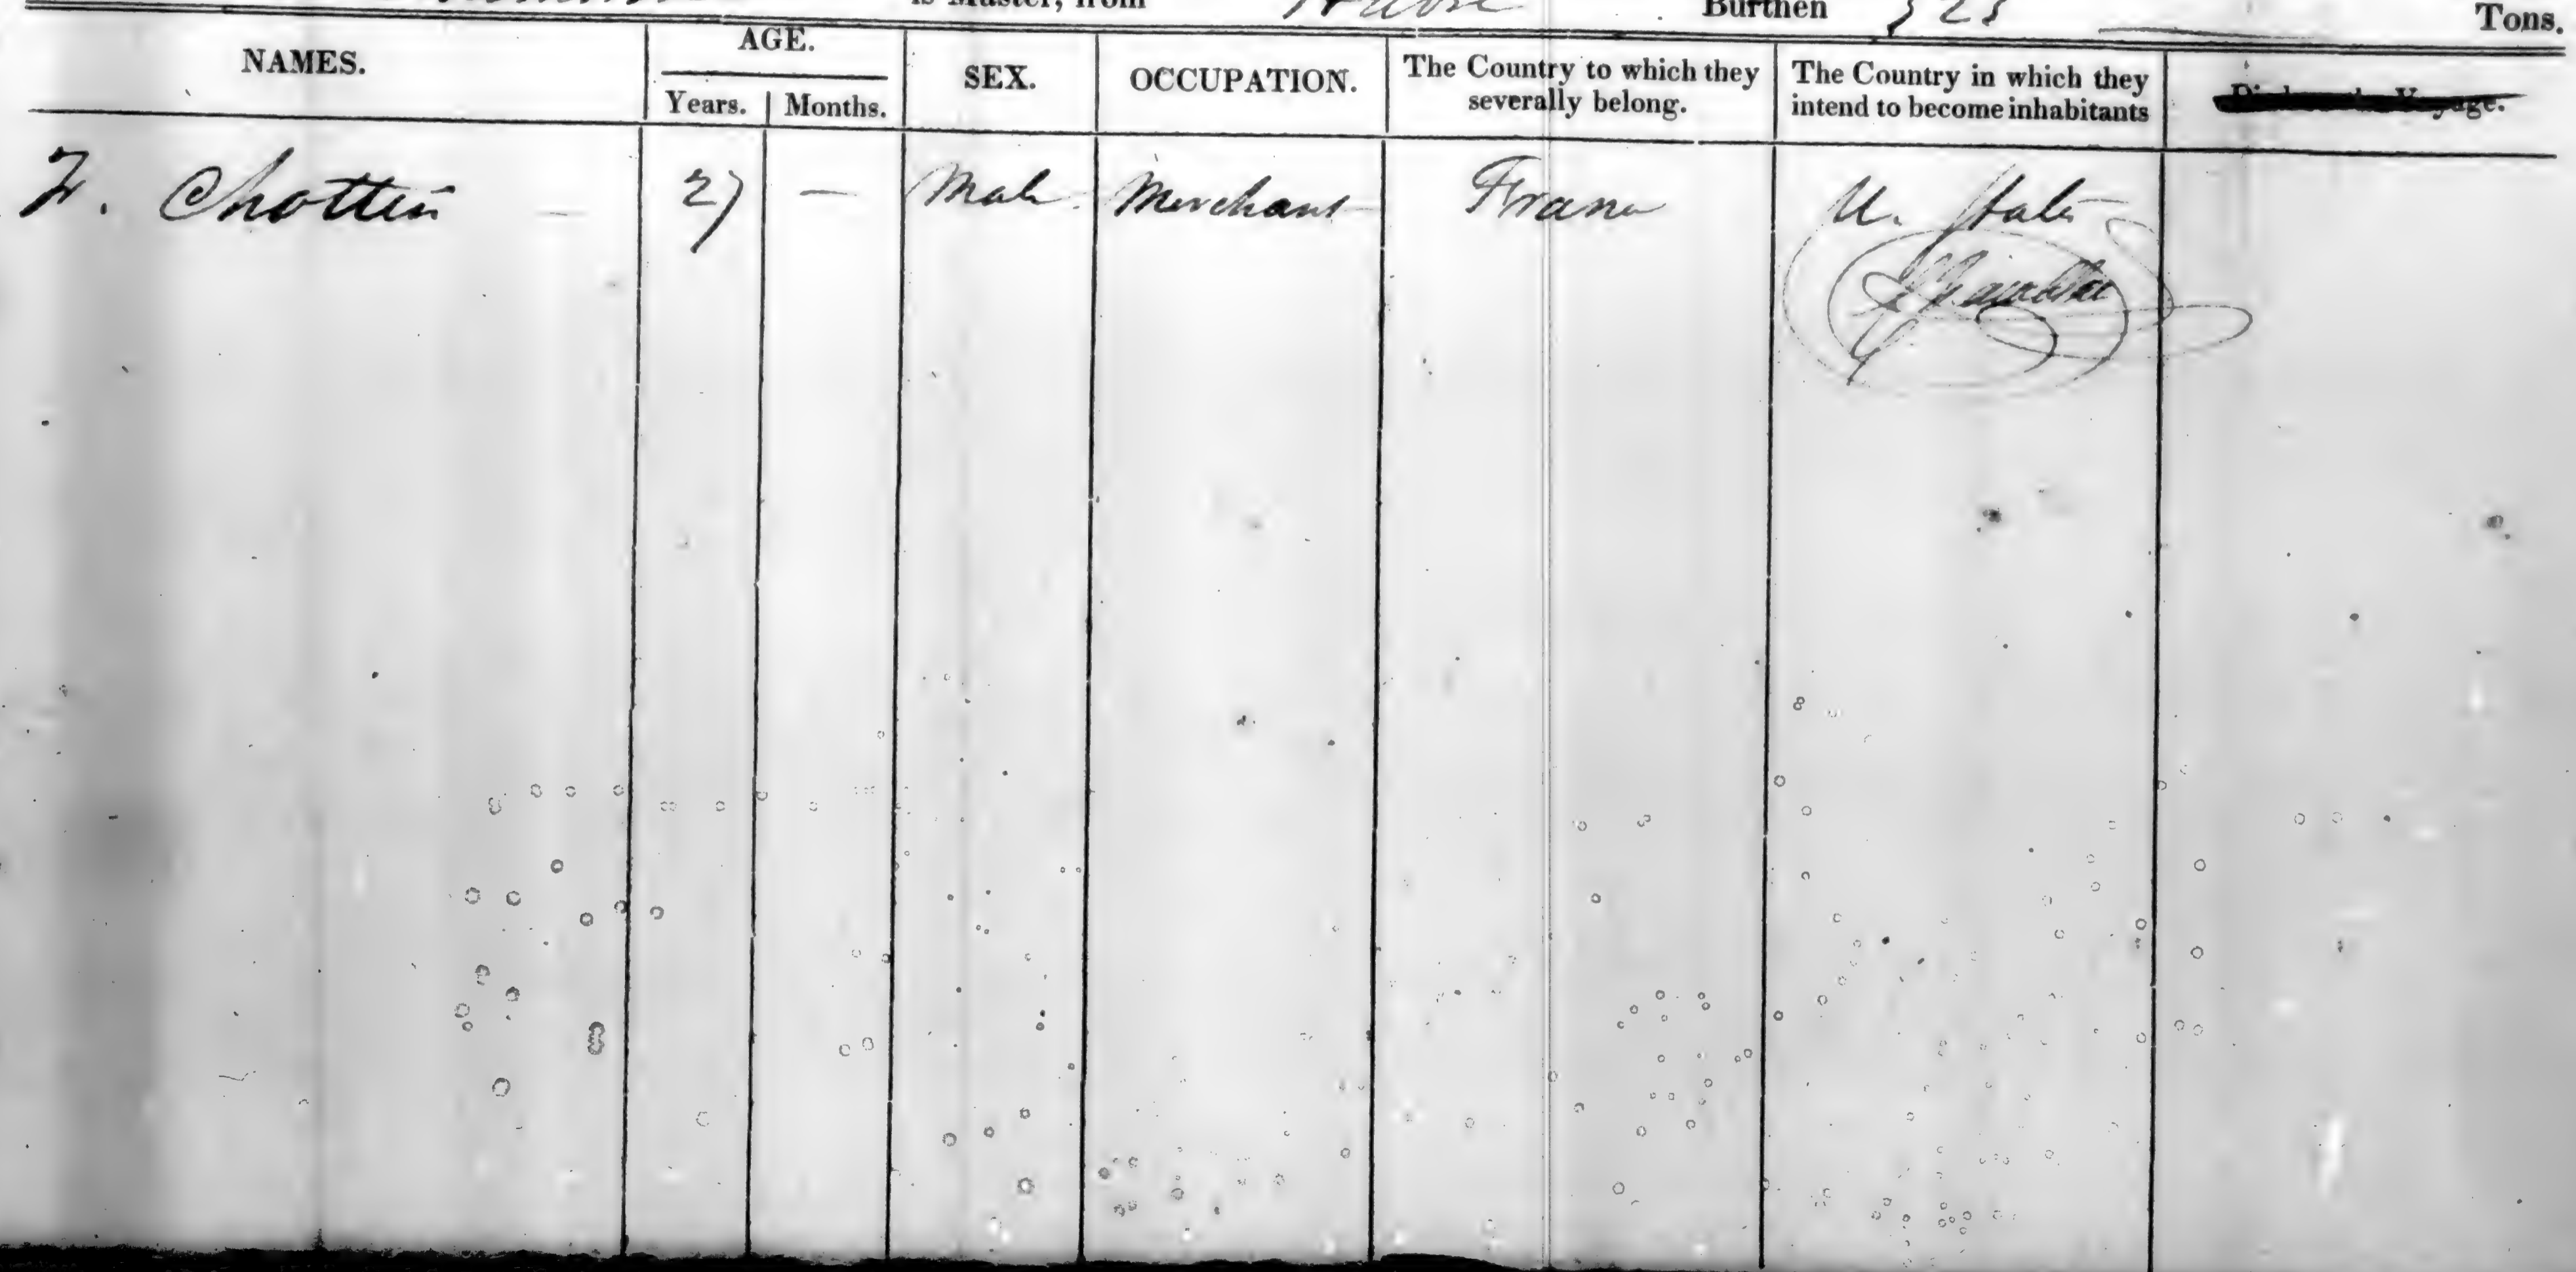 is Master, from Havre Burthen Tons.
NAMES. AGE. SEX. OCCUPATION. The Country to which they severally belong. The Country in which they intend to become inhabitants
Years. Months.
Chottin 27 — Male Merchant France U. States